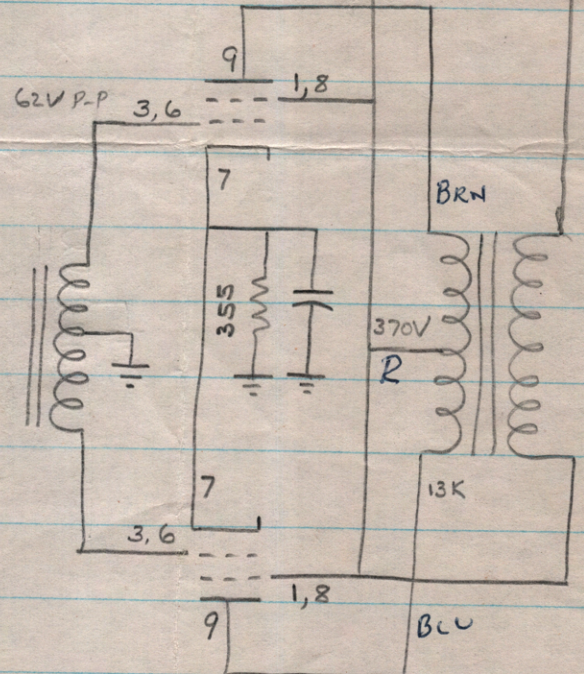 9
1,8
62V P-P
3,6
7
BRN
355
370V
R
7
13K
3,6
1,8
9
BLU